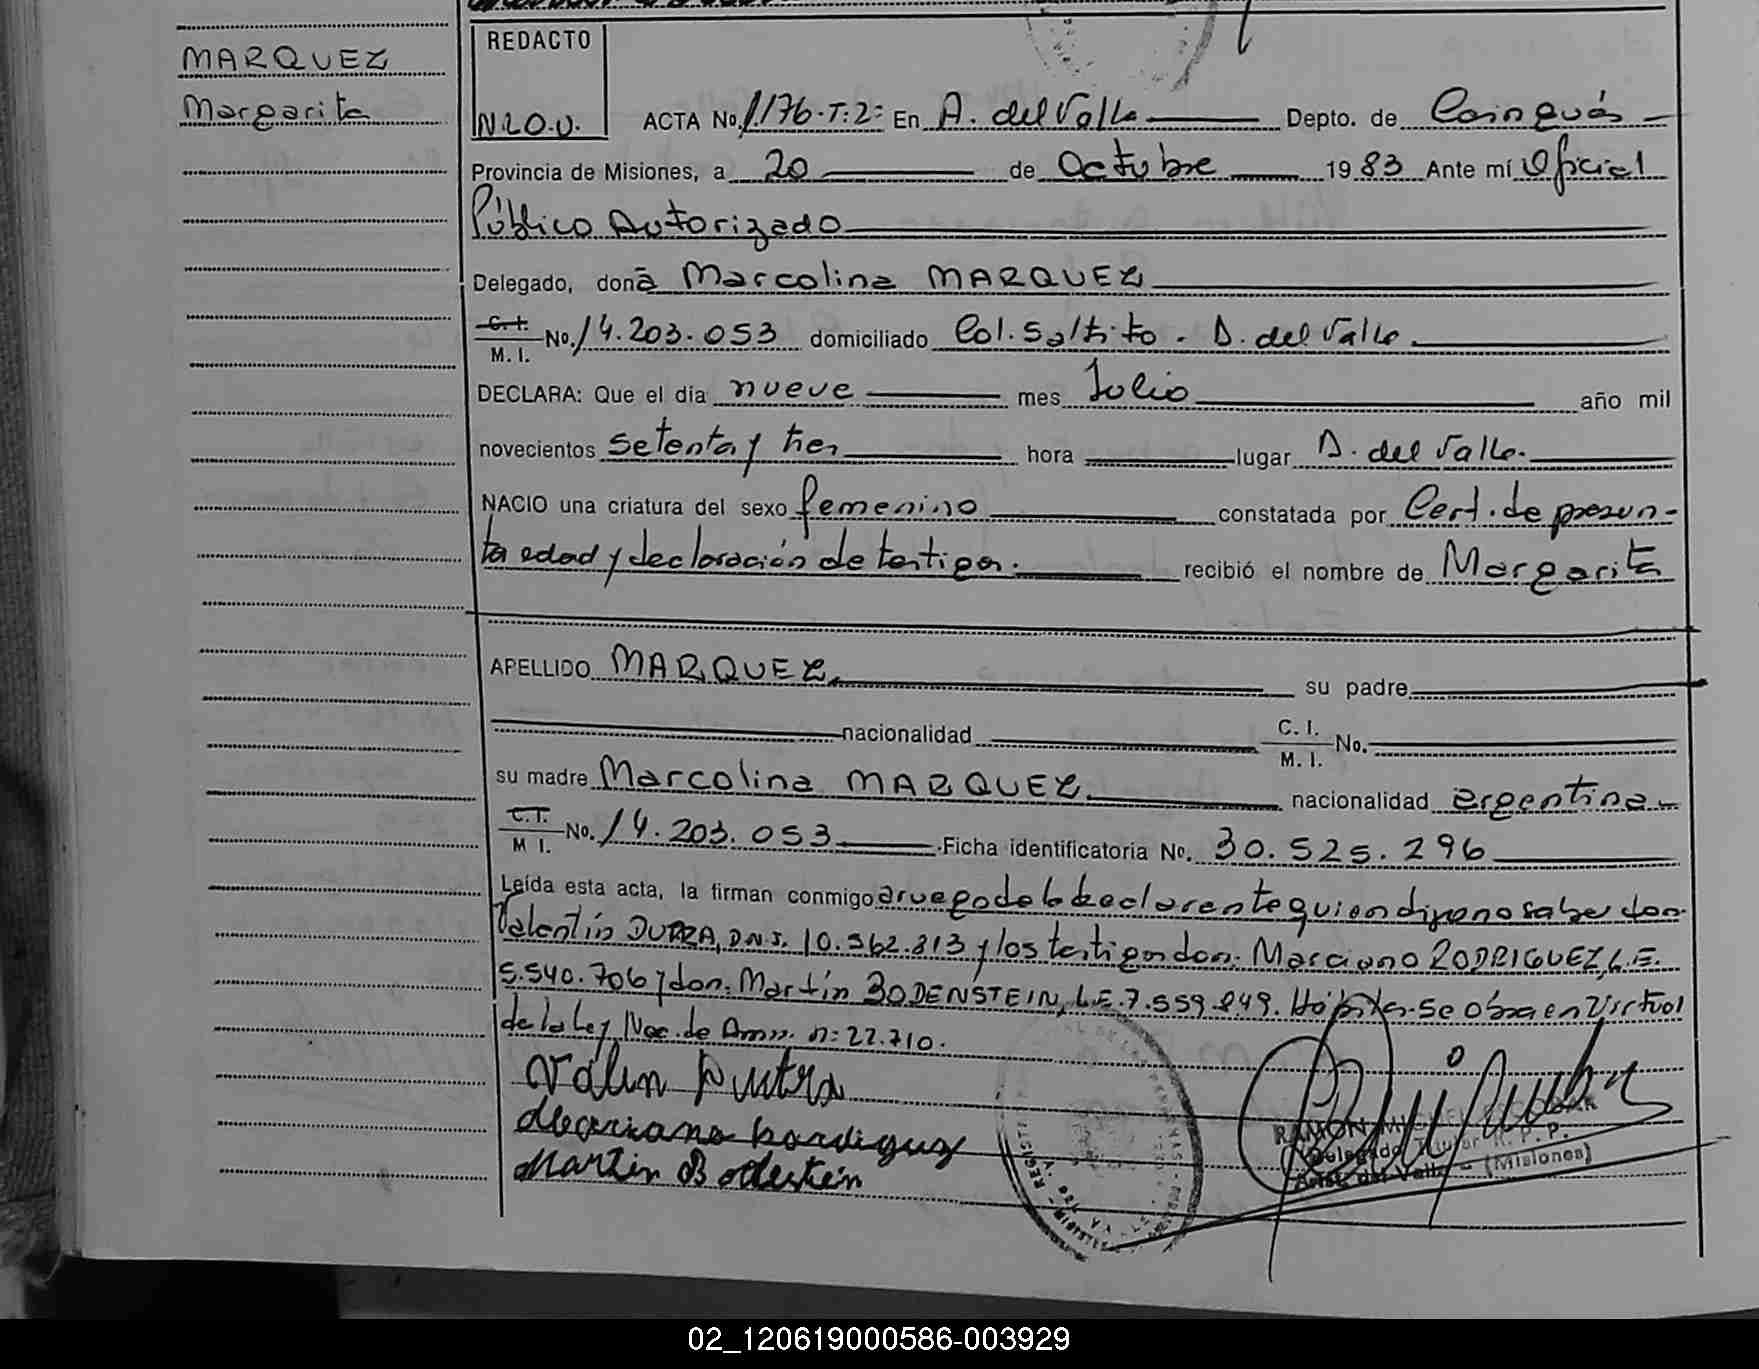 MARQUEZ
Margarita
REDACTO
N.L.O.V.
ACTA No. 1.176-T:2: En A. del Valle Depto. de Cainguás
Provincia de Misiones, a 20 de Octubre 1983 Ante mí Oficial
Público Autorizado
Delegado, doña Marcolina MARQUEZ
C.I. M.I. No. 14.203.053 domiciliado Col. Saltito - A. del Valle.
DECLARA: Que el día nueve mes Julio año mil
novecientos setenta y tres hora lugar A. del Valle.
NACIO una criatura del sexo femenino constatada por Cert. de presun-
ta edad y declaración de testigos. recibió el nombre de Margarita
APELLIDO MARQUEZ su padre
nacionalidad C. I. M. I. No.
su madre Marcolina MARQUEZ nacionalidad argentina
C.I. M I. No. 14.203.053 Ficha identificatoria No. 30.525.296
Leída esta acta, la firman conmigo a ruego de la declarante quien dijo no saber don
Valentín DUTRA, D.N.I. 10.362.813 y los testigos don: Marciano RODRIGUEZ, L.E.
5.540.706 y don: Martín BODENSTEIN, L.E. 7.559.849. Se obra en Virtud
de la Ley Nac. de Amn. n: 22.710.
Valin Dutra
Martin Bodestein
RAMON MIGUEL
Delegado Titular R. P. P.
Arist. del Valle - (Misiones)
02_120619000586-003929